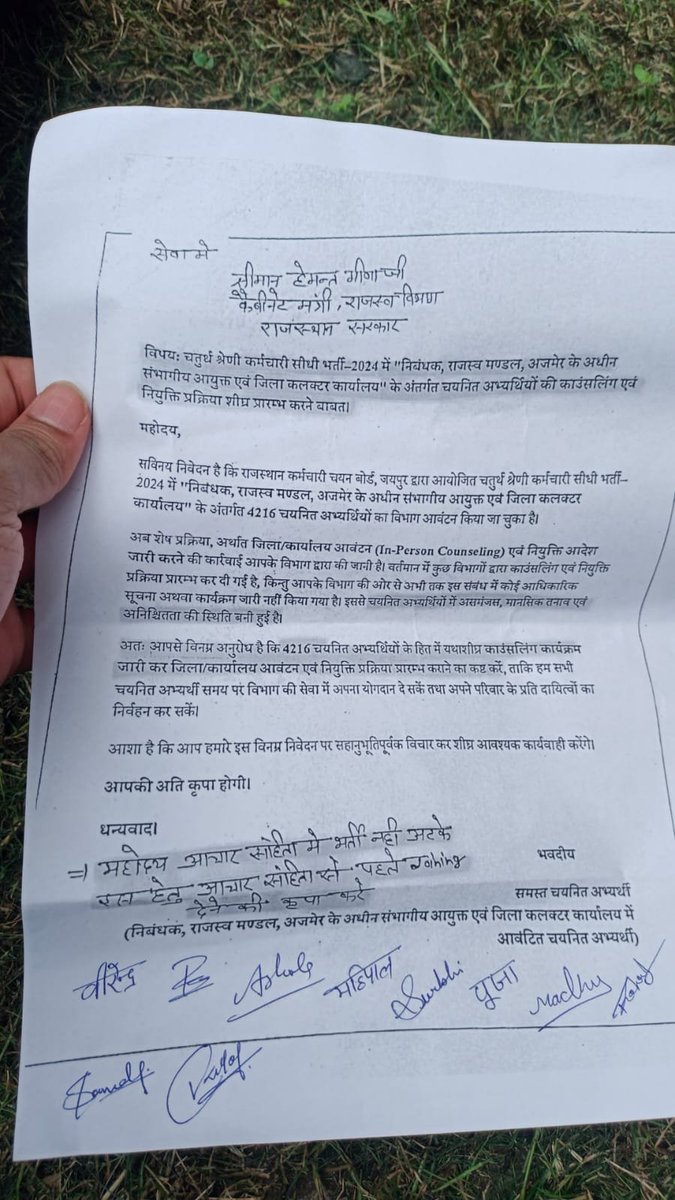 सेवा मे
श्रीमान हेमन्त मीणा जी
कैबीनेट मंत्री, राजस्व विभाग
राजस्थान सरकार
विषय: चतुर्थ श्रेणी कर्मचारी सीधी भर्ती–2024 में "निबंधक, राजस्व मण्डल, अजमेर के अधीन
संभागीय आयुक्त एवं जिला कलक्टर कार्यालय" के अंतर्गत चयनित अभ्यर्थियों की काउंसलिंग एवं
नियुक्ति प्रक्रिया शीघ्र प्रारम्भ करने बाबत।
महोदय,
सविनय निवेदन है कि राजस्थान कर्मचारी चयन बोर्ड, जयपुर द्वारा आयोजित चतुर्थ श्रेणी कर्मचारी सीधी भर्ती–
2024 में "निबंधक, राजस्व मण्डल, अजमेर के अधीन संभागीय आयुक्त एवं जिला कलक्टर
कार्यालय" के अंतर्गत 4216 चयनित अभ्यर्थियों का विभाग आवंटन किया जा चुका है।
अब शेष प्रक्रिया, अर्थात जिला/कार्यालय आवंटन (In-Person Counseling) एवं नियुक्ति आदेश
जारी करने की कार्रवाई आपके विभाग द्वारा की जानी है। वर्तमान में कुछ विभागों द्वारा काउंसलिंग एवं नियुक्ति
प्रक्रिया प्रारम्भ कर दी गई है, किन्तु आपके विभाग की ओर से अभी तक इस संबंध में कोई आधिकारिक
सूचना अथवा कार्यक्रम जारी नहीं किया गया है। इससे चयनित अभ्यर्थियों में असमंजस, मानसिक तनाव एवं
अनिश्चितता की स्थिति बनी हुई है।
अतः आपसे विनम्र अनुरोध है कि 4216 चयनित अभ्यर्थियों के हित में यथाशीघ्र काउंसलिंग कार्यक्रम
जारी कर जिला/कार्यालय आवंटन एवं नियुक्ति प्रक्रिया प्रारम्भ कराने का कष्ट करें, ताकि हम सभी
चयनित अभ्यर्थी समय पर विभाग की सेवा में अपना योगदान दे सकें तथा अपने परिवार के प्रति दायित्वों का
निर्वहन कर सकें।
आशा है कि आप हमारे इस विनम्र निवेदन पर सहानुभूतिपूर्वक विचार कर शीघ्र आवश्यक कार्यवाही करेंगे।
आपकी अति कृपा होगी।
धन्यवाद।
⇒ महोदय आचार संहिता मे भर्ती नही अटके
इस हेतु आचार संहिता से पहले joining
देने की कृपा करे
भवदीय
समस्त चयनित अभ्यर्थी
(निबंधक, राजस्व मण्डल, अजमेर के अधीन संभागीय आयुक्त एवं जिला कलक्टर कार्यालय में
आवंटित चयनित अभ्यर्थी)
वीरेन्द्र Ashok महिपाल Surbhi पूजा Madhu